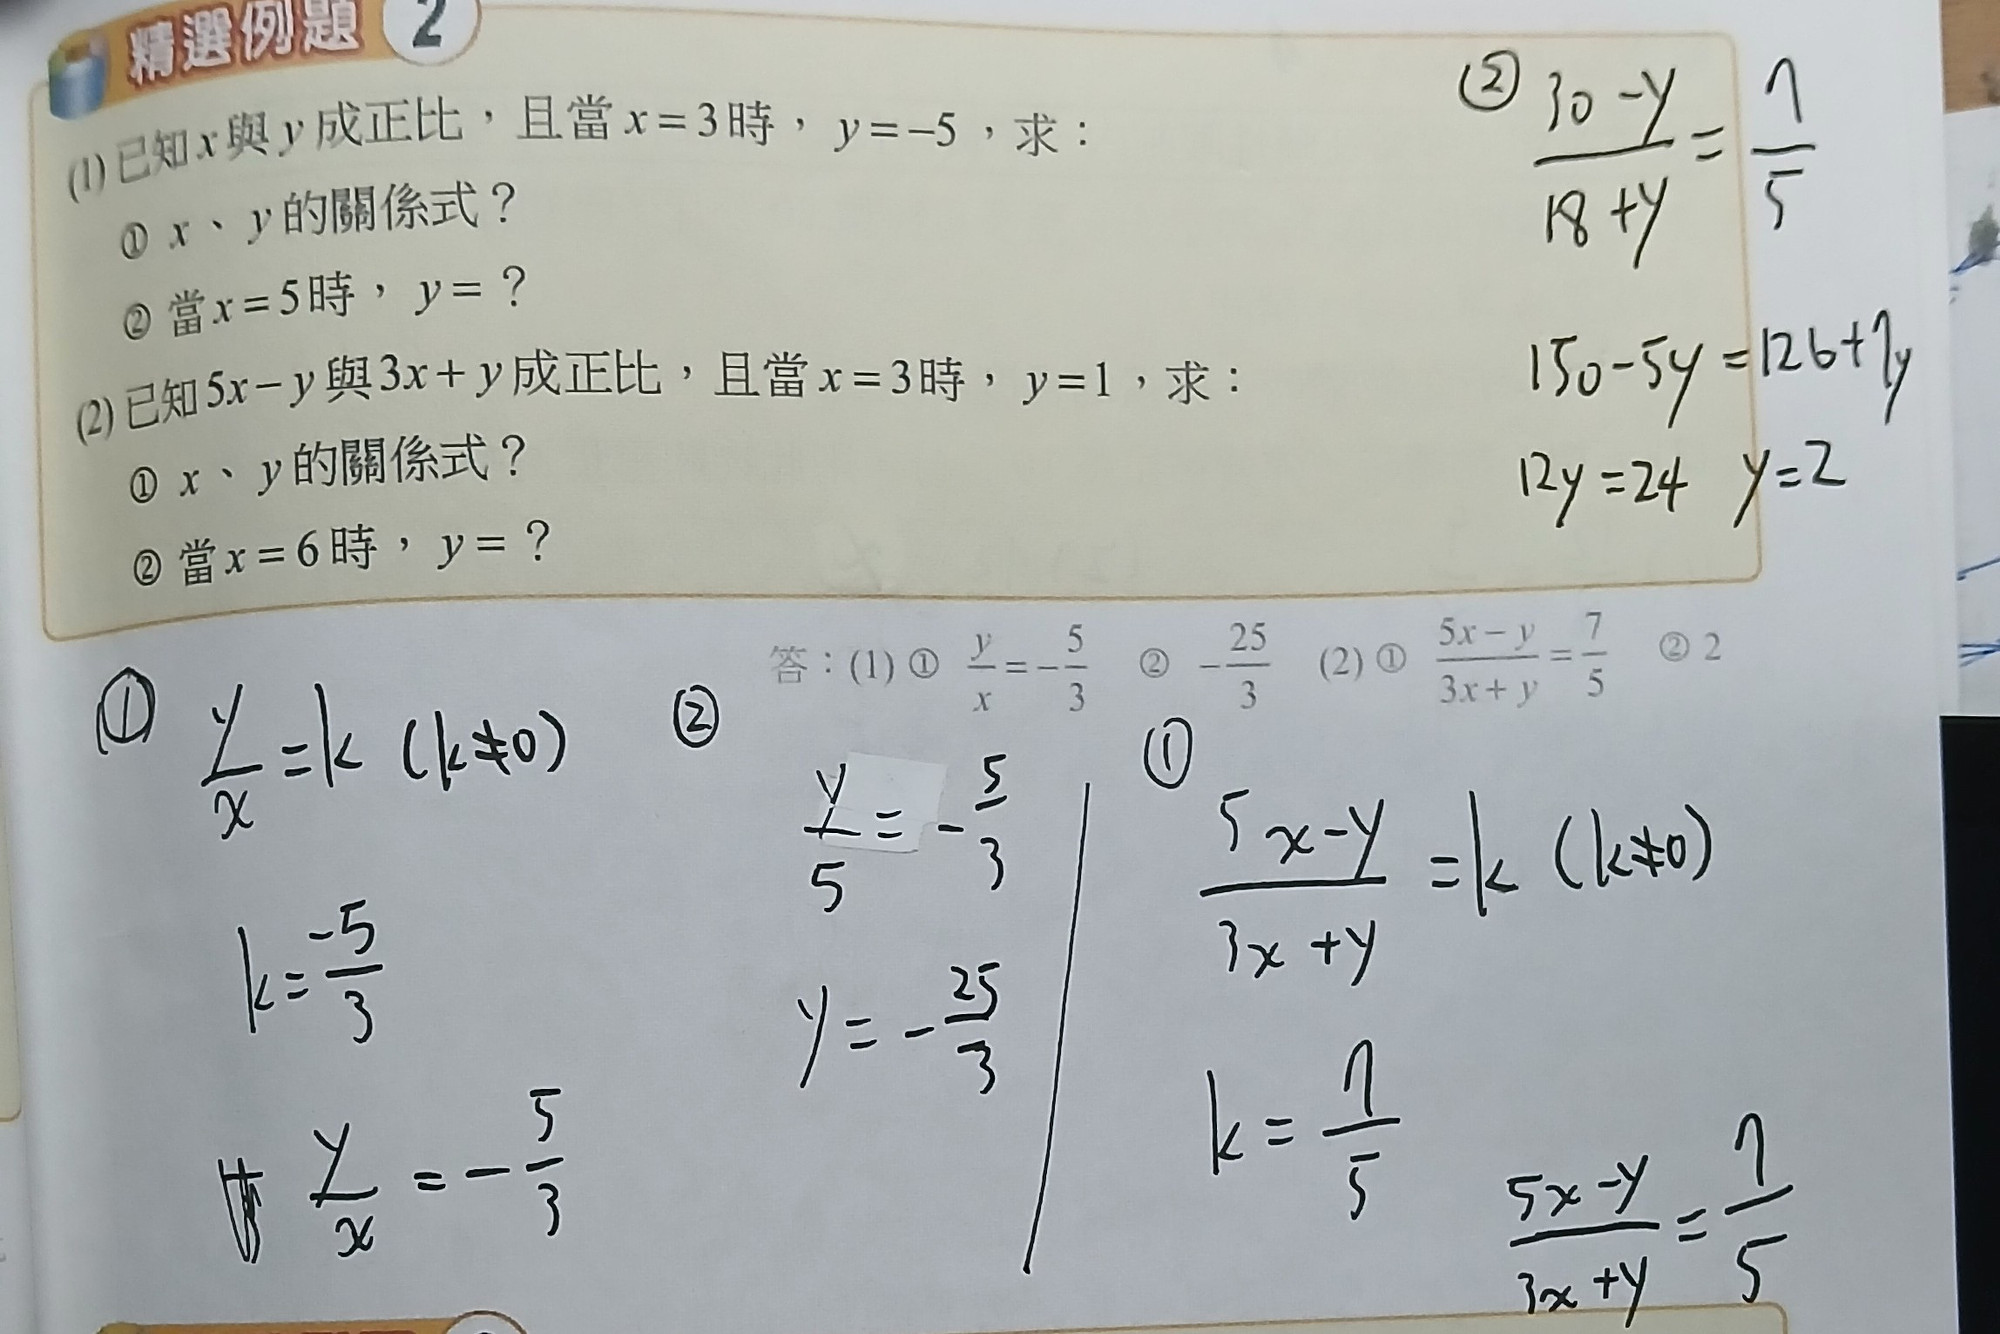 精選例題 2
(1) 已知x與y成正比，且當x=3時，y=-5，求：
① x、y的關係式？
② 當x=5時，y=？
(2) 已知5x-y與3x+y成正比，且當x=3時，y=1，求：
① x、y的關係式？
② 當x=6時，y=？
② (30-y)/(18+y) = 7/5
150-5y=126+7y
12y=24 y=2
答：(1) ① y/x=-5/3 ② -25/3 (2) ① (5x-y)/(3x+y)=7/5 ② 2
① y/x=k (k≠0)
k=-5/3
y/x=-5/3
② y/5=-5/3
y=-25/3
① (5x-y)/(3x+y)=k (k≠0)
k=7/5
(5x-y)/(3x+y)=7/5